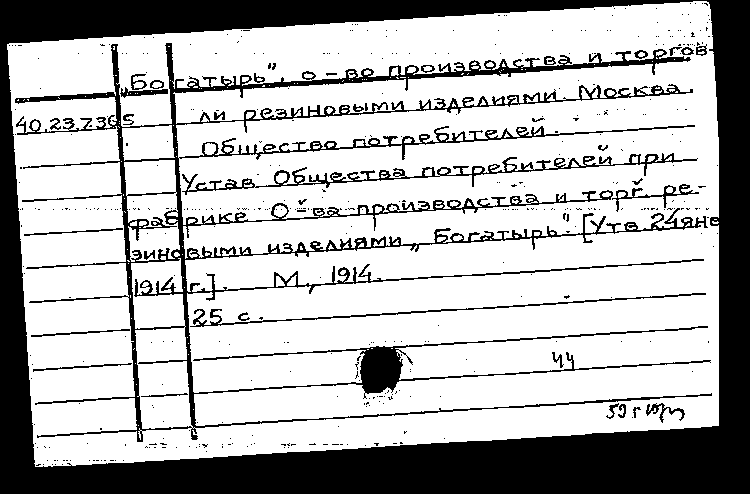 „Богатырь", о-во производства и торгов-
40.23.7365 ли резиновыми изделиями. Москва.
Общество потребителей.
Устав Общества потребителей при
фабрике О-ва производства и торг. ре-
зиновыми изделиями „Богатырь". [Утв. 24 янв
1914 г.]. М., 1914.
25 с.
44